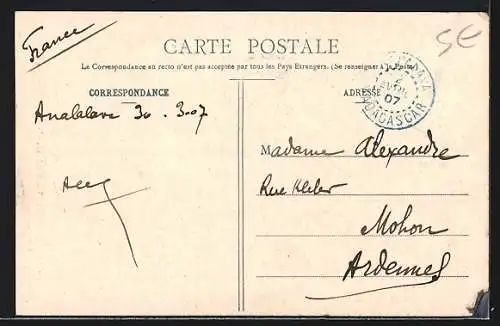 France
5E
CARTE POSTALE
La Correspondance au recto n'est pas acceptée par tous les Pays Etrangers. (Se renseigner à la Poste)
CORRESPONDANCE
ADRESSE
2
AVRIL
07
MADAGASCAR
Analalava 30.3.07
Madame Alexandre
Rue Kleber
Mohon
Ardennes